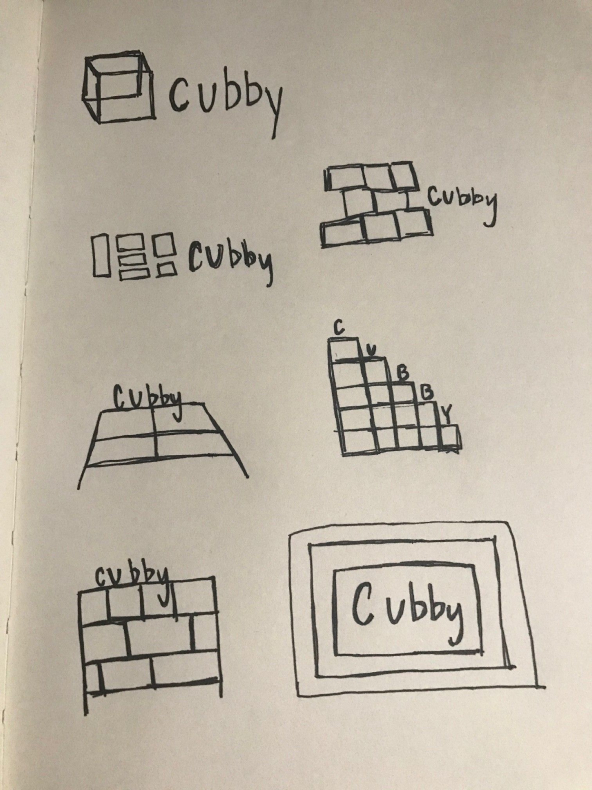 cubby
cubby
cubby
C
U
B
B
Y
cubby
cubby
Cubby